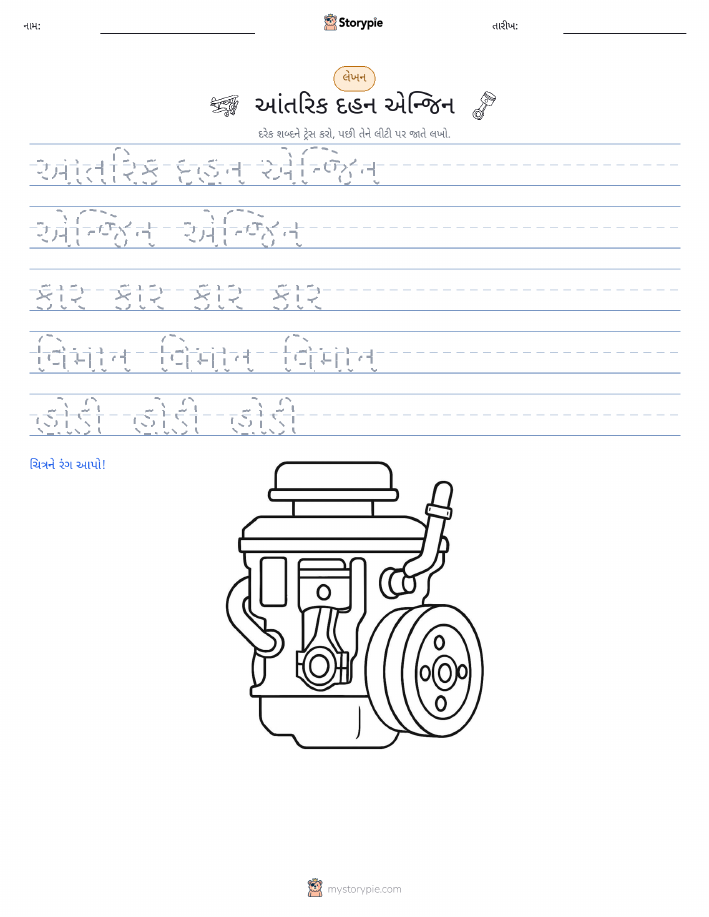 નામ:
Storypie
તારીખ:
લેખન
આંતરિક દહન એન્જિન
દરેક શબ્દને ટ્રેસ કરો, પછી તેને લીટી પર જાતે લખો.
આંતરિક દહન એન્જિન
એન્જિન એન્જિન
કાર કાર કાર કાર
વિમાન વિમાન વિમાન
હોડી હોડી હોડી
ચિત્રને રંગ આપો!
mystorypie.com